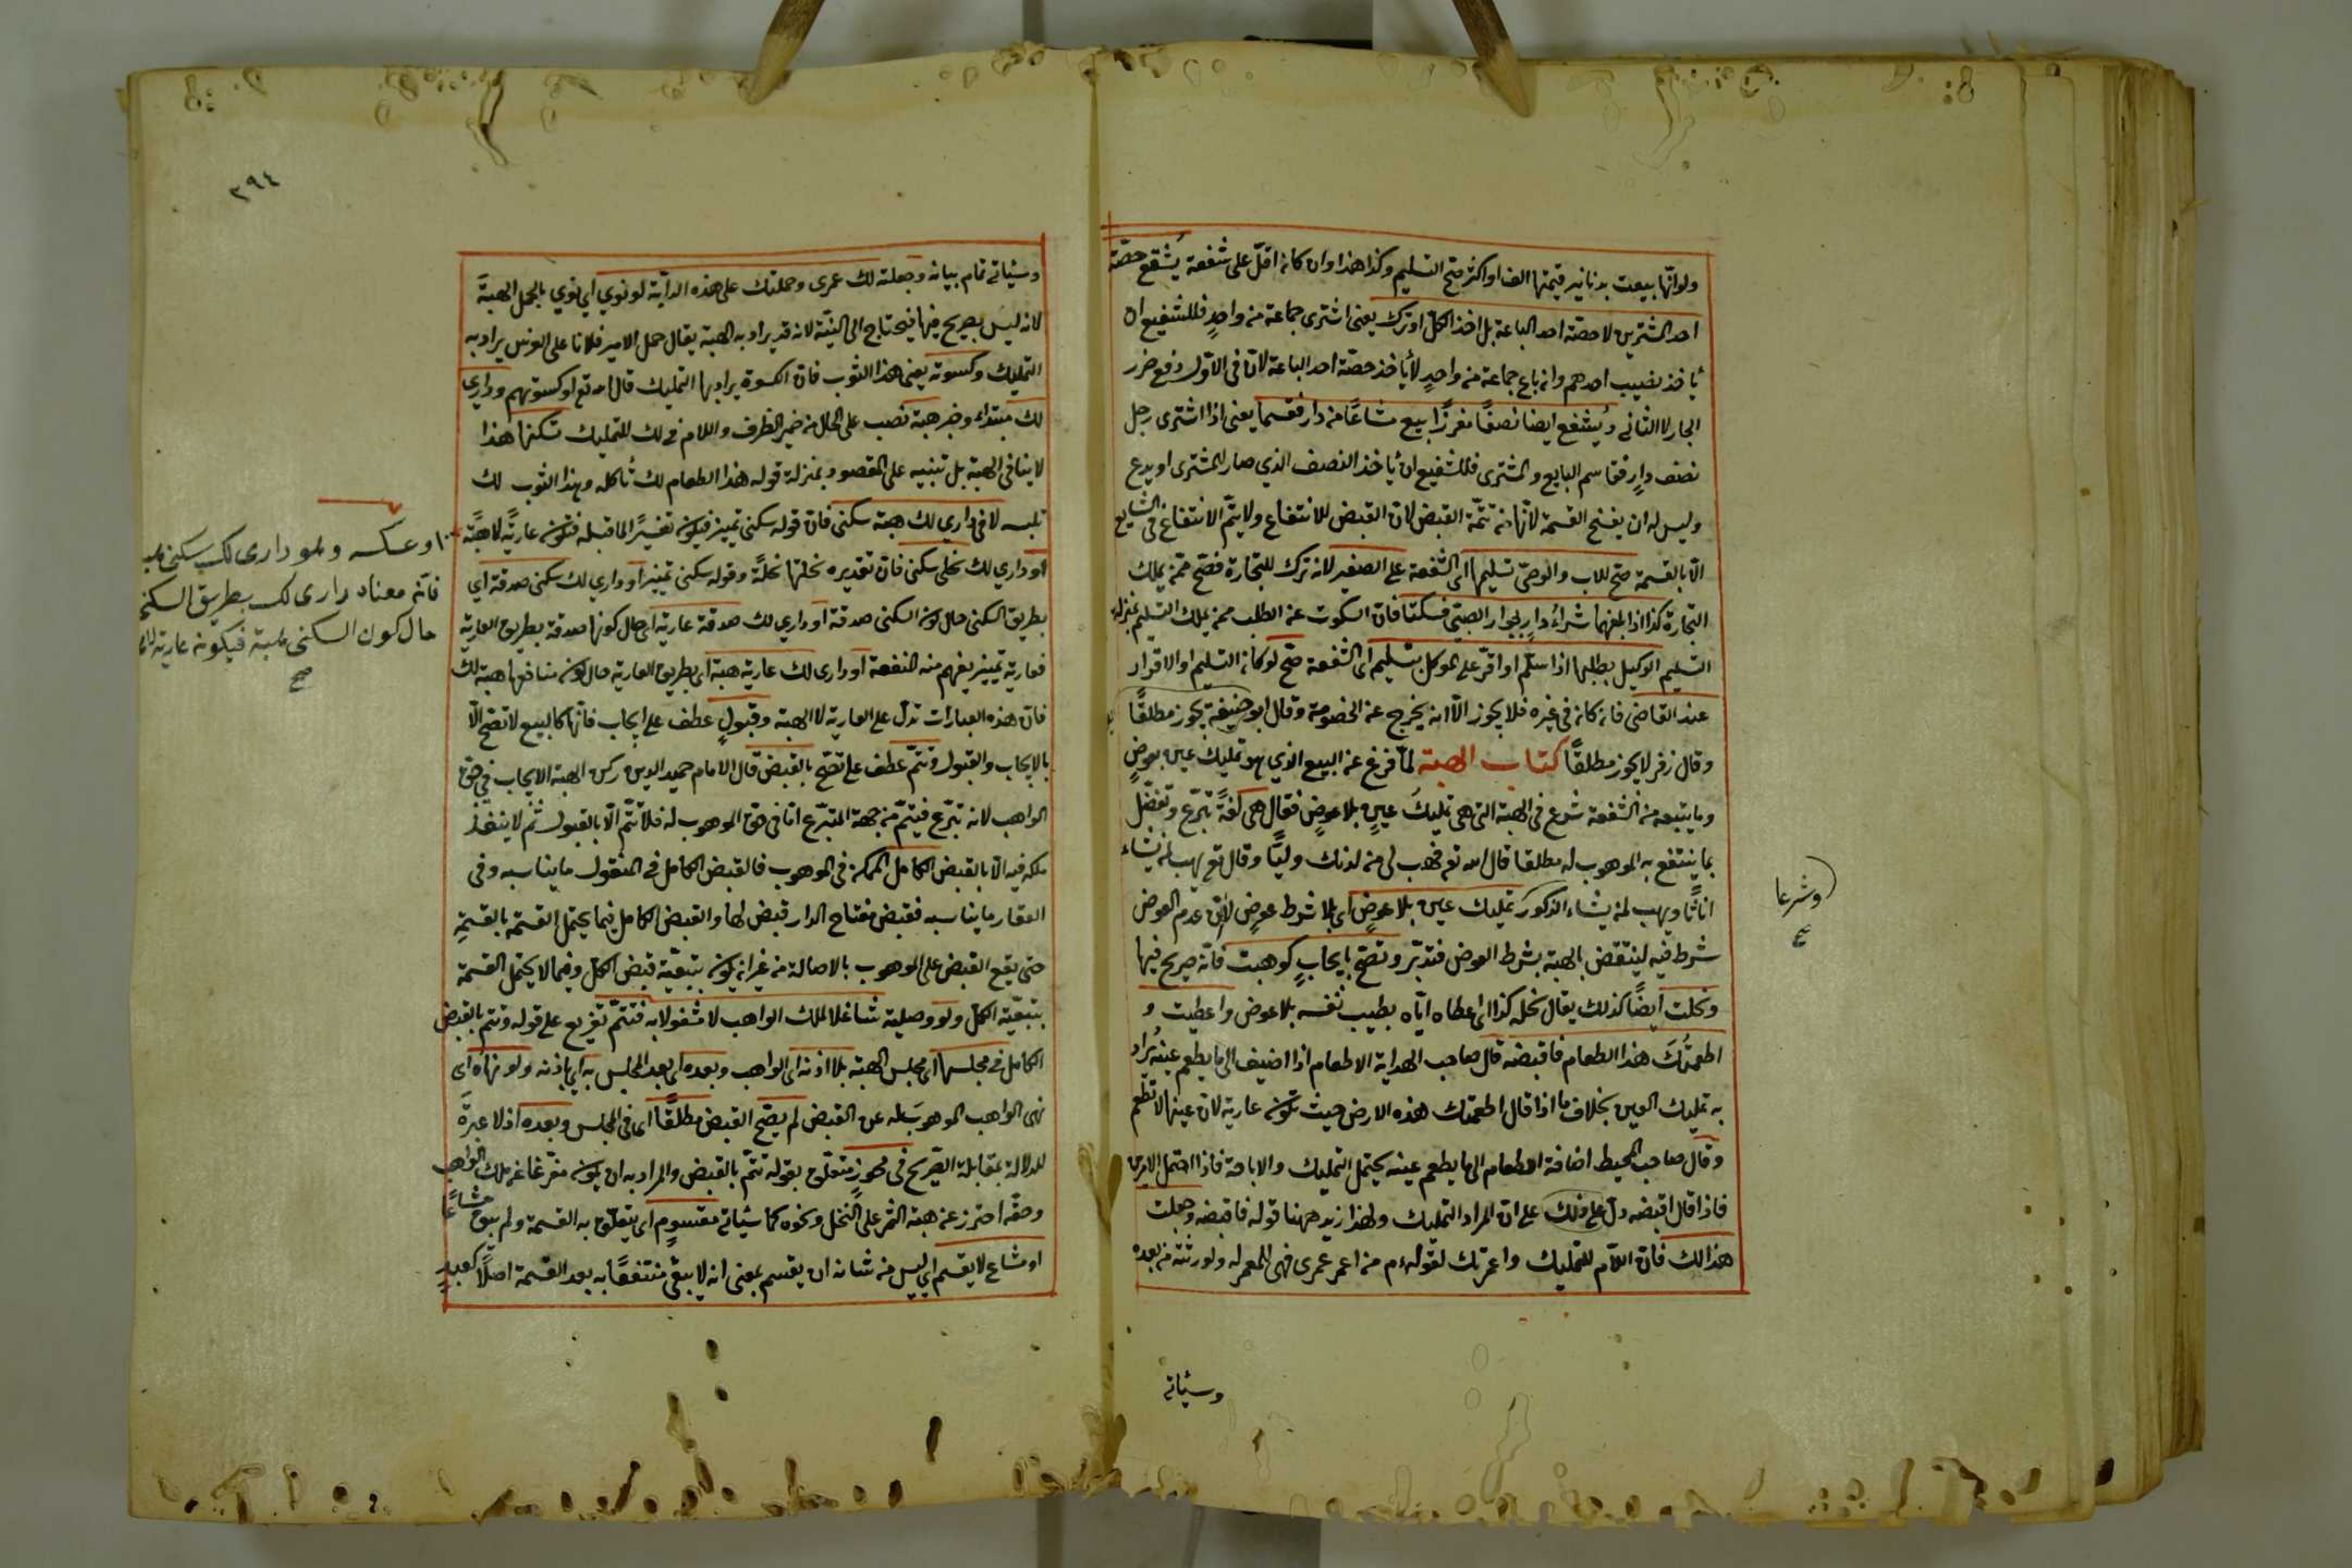 ولو انّها بيعت بدنانير قيمتها الف او اكثر صحّ التسليم وكذا هذا وان كانه اقلّ على شفعة يُشفع حصّة
احد المشترين لا حصّة احد الباعة بل اخذ الكلّ او ترك يعنى اشترى جماعة من واحدٍ فللشفيع ان
يأخذ نصيب احدهم وان باع جماعة من واحدٍ لا يأخذ حصّة احد الباعة لانّ فى الاوّل دفع ضرر
الجار لا الثانى ويُشفع ايضا نصفًا مفرزًا بيع مشاعًا من دار فقسما يعنى اذا اشترى رجل
نصف دارٍ فقاسم البايع والمشترى فللشفيع ان يأخذ النصف الذي صار للمشترى او يدع
وليس له ان يفسخ القسمة لانّها من تتمّة القبض لان القبض للانتفاع ولا يتمّ الانتفاع فى الشايع
الّا بالقسمة صحّ للاب والوصىّ تسليمها اى الشفعة على الصغير لانه ترك للتجارة فصحّ ممّن يملك
التجارة كذا اذا بلغهما شراءُ دارٍ بجوار الصبىّ فسكتا فانّ السكوت عن الطلب ممن يملك التسليم بمنزلة
التسليم الوكيل بطلبها اذا سلّم او اقرّ على الموكل بتسليمه اى الشفعة صحّ لو كان التسليم او الاقرار
عند القاضى فان كان فى غيره فلا يجوز الّا انه يخرج عن الخصومة وقال ابو حنيفة يجوز مطلقًا
وقال زفر لا يجوز مطلقًا كتاب الهبة لمّا فرغ عن البيع الذي هو تمليك عين بعوضٍ
وما يتبعه من الشفعة شرع فى الهبة التى هى تمليكُ عينٍ بلا عوضٍ فقال هى لغةً تبرّع وتفضّل
بما ينتفع به الموهوب له مطلقا قال الله تع فهب لى من لدنك وليًّا وقال تع يهب لمن يشاء
اناثًا ويهب لمن يشاء الذكور تمليك عين بلا عوضٍ اى بلا شرط عوضٍ لا انّ عدم العوض
شرط فيه لينتقض بالهبة بشرط العوض فتدبّر وتصحّ بايجابٍ كوهبت فانّه صريح فيها
ونحلت ايضًا كذلك يقال نحله كذا اى اعطاه ايّاه بطيب نفسه بلا عوض واعطيت و
اطعمتُكَ هذا الطعام فاقبضه قال صاحب الهداية الاطعام اذا اضيف الى ما يطعم عينه يُراد
به تمليك العين بخلاف ما اذا قال اطعمتك هذه الارض حيث تكون عارية لان عينها لا تطعم
وقال صاحب المحيط اضافة الاطعام الى ما يطعم عينه يحتمل التمليك والاباحة فاذا احتمل الامرين
فاذا قال اقبضه دلّ على ذلك على انّ المراد التمليك ولهذا زيد ههنا قوله فاقبضه وجعلت
هذا لك فانّ اللّام للتمليك واعمرتك لقوله ءم من اعمر عمرى فهى للمعمر له ولورثته من بعده
وشرعا
وسيأتى
٢٩٤
وسيأتى تمام بيانه وجعلته لك عمرى وحملتك على هذه الدابّة لو نوي اي نوي بالحمل الهبةَ
لانه ليس بصريح فيها فيحتاج الى النيّة لانه قد يراد به الهبة يقال حمل الامير فلانا على الفرس يراد به
التمليك وكسوته يعنى هذا الثوب فانّ الكسوة يراد بها التمليك قال الله تع او كسوتهم وداري
لك مبتداء وخبر هبة نصب على الحال من ضمير الظرف واللام فى لك للتمليك تسكنها هذا
لا ينافى الهبة بل تنبيه على المقصود بمنزلة قوله هذا الطعام لك تأكله وهذا الثوب لك
تلبسه لا فى داري لك هبة سكنى فانّ قوله سكنى تمييز فيكون تفسيرًا لما قبله فتكون عاريّةً لا هبةً
او داري لك نحلى سكنى فانّ تقديره نحلتها نحلةً وقوله سكنى تمييز او داري لك سكنى صدقة اي
بطريق السكنى حال كون السكنى صدقة او داري لك صدقة عارية اى حال كونها صدقة بطريق العارية
فعارية تمييز يفهم منه المنفعة او دارى لك عارية هبة اى بطريق العارية حال كون منافعها هبة لك
فانّ هذه العبارات تدلّ على العارية لا الهبة وقبولٍ عطف على ايجاب فانّها كالبيع لا تصحّ الّا
بالايجاب والقبول وتتمّ عطف على تصحّ بالقبض قال الامام حميد الدين ركن الهبة الايجاب فى حقّ
الواهب لانه تبرّع فيتمّ من جهة المتبرّع امّا فى حقّ الموهوب له فلا تتمّ الّا بالقبول ثم لا ينفذ
ملكه فيه الّا بالقبض الكامل الممكن فى الموهوب فالقبض الكامل فى المنقول ما يناسبه وفى
العقار ما يناسبه فقبض مفتاح الدار قبض لها والقبض الكامل فيما يحتمل القسمة بالقسمةِ
حتى يقع القبض على الموهوب بالاصالة من غير ان يكون بتبعيّة قبض الكلّ وفيما لا يحتمل القسمة
بتبعيّة الكلّ ولو وصلية شاغلا لملك الواهب لا مشغولا به فتتمّ تفريع على قوله وتتم بالقبض
الكامل فى مجلسها اى مجلس الهبة بلا اذنه اى الواهب وبعده اى بعد المجلس به اي باذنه ولو نهاه اى
نهى الواهب الموهوب له عن القبض لم يصحّ القبض مطلقًا اى فى المجلس وبعده اذ لا عبرةَ
للدلالة بمقابلة الصّريح فى محوزٍ متعلّق بقوله تتمّ بالقبض والمراد به ان يكون مفرّغا عن ملك الواهب
وحقّه احترز عن هبة الثمر على النخل ونحوه كما سيأتى مقسومٍ اى يتعلّق به القسمة ولم يبق مشاعًا
او مشاعٍ لا يقسم اي ليس من شانه ان يقسم بمعنى انه لا يبقى منتفعًا به بعد القسمة اصلًا كعبدٍ
او عكسه وهو دارى لك سكنى هبة
فانّه معناه دارى لك بطريق السكنى
حال كون السكنى هبة فيكون عارية
صح